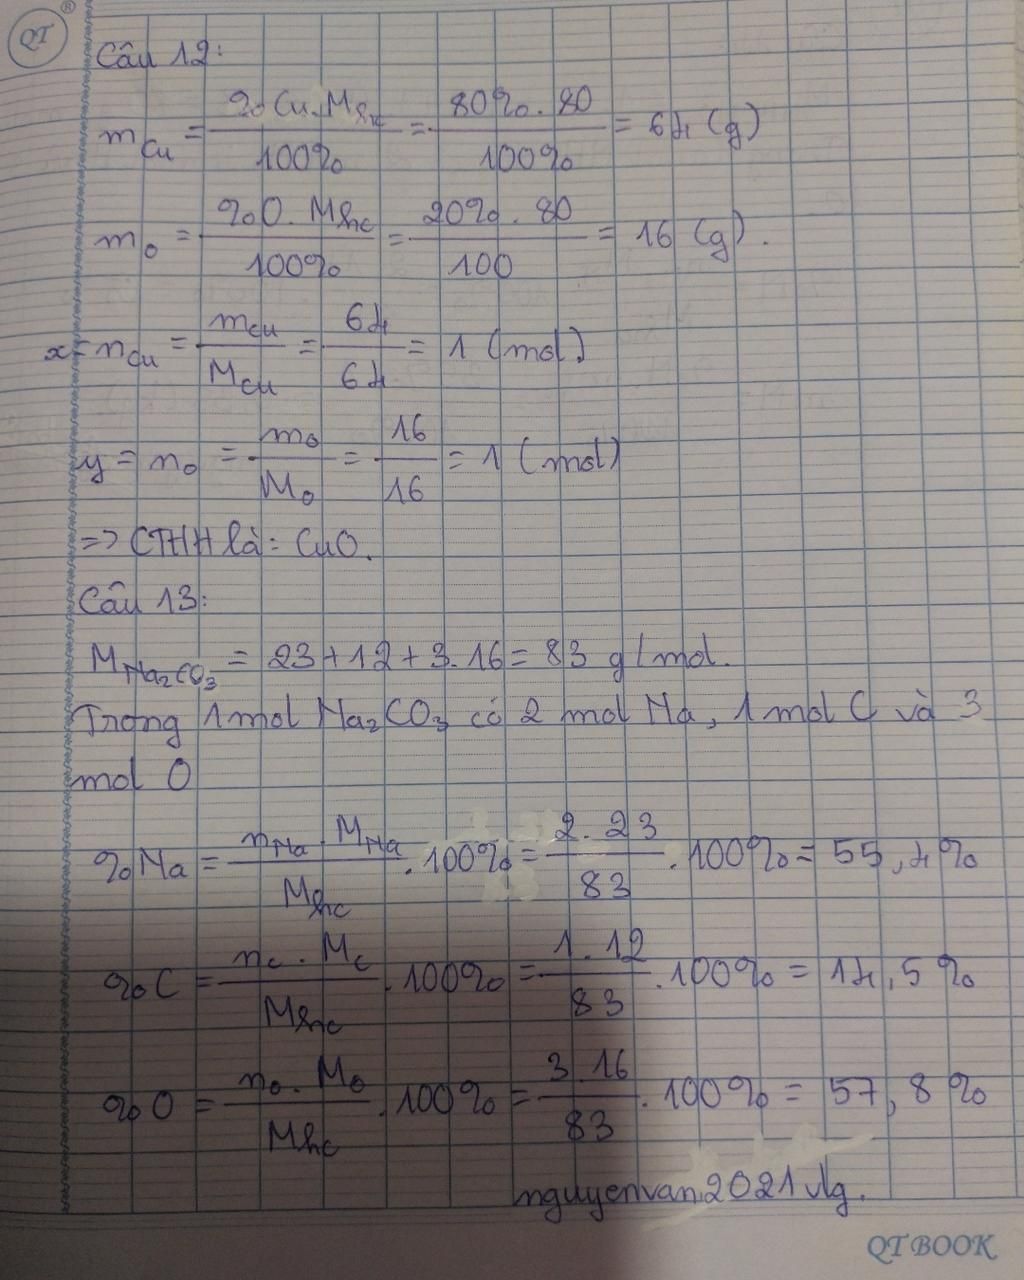 QT ®
Câu 12:
m_Cu = %Cu.M_hc / 100% = 80%.80 / 100% = 64 (g)
m_O = %O.M_hc / 100% = 20%.80 / 100 = 16 (g).
x = n_Cu = m_Cu / M_Cu = 64 / 64 = 1 (mol)
y = n_O = m_O / M_O = 16 / 16 = 1 (mol)
=> CTHH là: CuO.
Câu 13:
M_Na₂CO₃ = 23+12+3.16 = 83 g/mol.
Trong 1mol Na₂CO₃ có 2 mol Na, 1 mol C và 3
mol O
%Na = n_Na.M_Na / M_hc .100% = 2.23 / 83 .100% = 55,4%
%C = n_C.M_C / M_hc .100% = 1.12 / 83 .100% = 14,5%
%O = n_O.M_O / M_hc .100% = 3.16 / 83 .100% = 57,8%
nguyenvan2021vlg.
QTBOOK